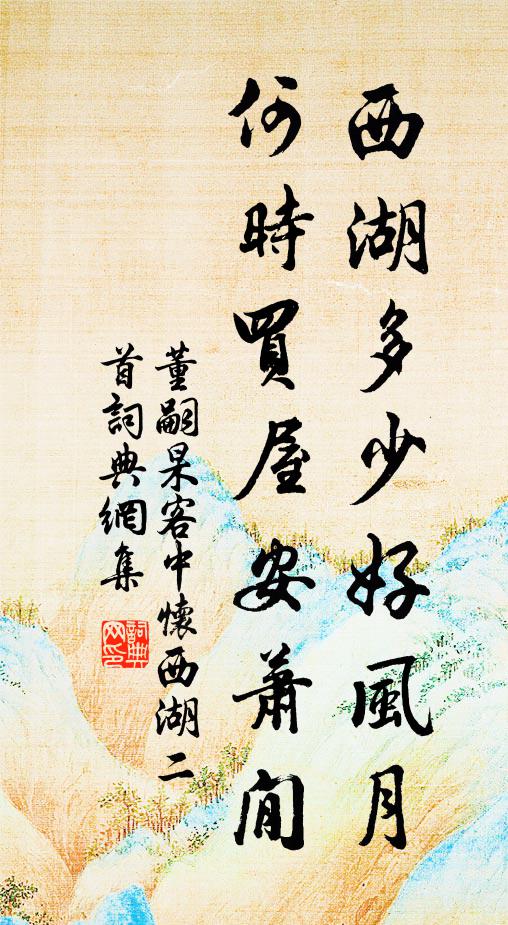 西湖多少好風月
何時買屋安蕭閒
董嗣杲客中懷西湖二
首詞典網集
詞典网印